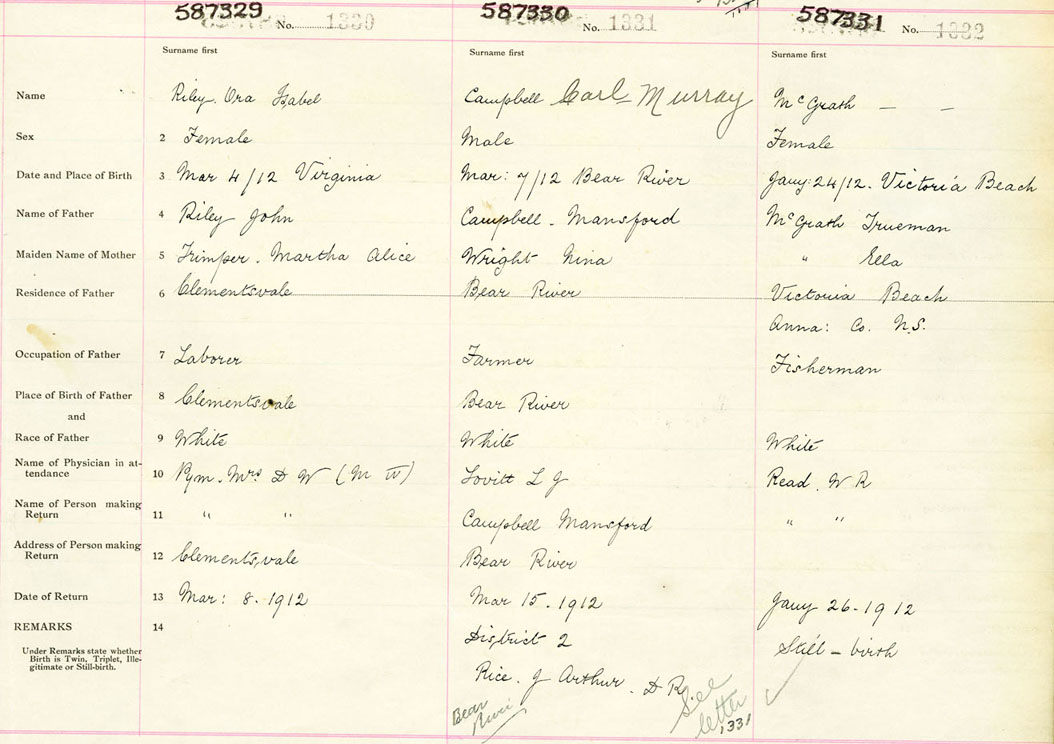 587329 587330 587331
No. 1330 No. 1331 No. 1332
Surname first Surname first Surname first
Name Riley. Ora Isabel Campbell Carl Murray McGrath — —
Sex 2 Female Male Female
Date and Place of Birth 3 Mar 4/12 Virginia Mar: 7/12 Bear River Jany: 24/12. Victoria Beach
Name of Father 4 Riley John Campbell. Mansford McGrath Trueman
Maiden Name of Mother 5 Trimper. Martha Alice Wright Nina " Ella
Residence of Father 6 Clementsvale Bear River Victoria Beach
Anna: Co. N.S.
Occupation of Father 7 Laborer Farmer Fisherman
Place of Birth of Father 8 Clementsvale Bear River
and
Race of Father 9 White White White
Name of Physician in at-
tendance 10 Pym. Mrs D W (M W) Lovitt L J Read. W R
Name of Person making
Return 11 " " Campbell Mansford " "
Address of Person making
Return 12 Clementsvale Bear River
Date of Return 13 Mar: 8. 1912 Mar 15. 1912 Jany 26-1912
REMARKS 14 District 2 Still-birth
Under Remarks state whether
Birth is Twin, Triplet, Ille-
gitimate or Still-birth.
Rice. J Arthur. D R.
Bear
River
See
letter
1331